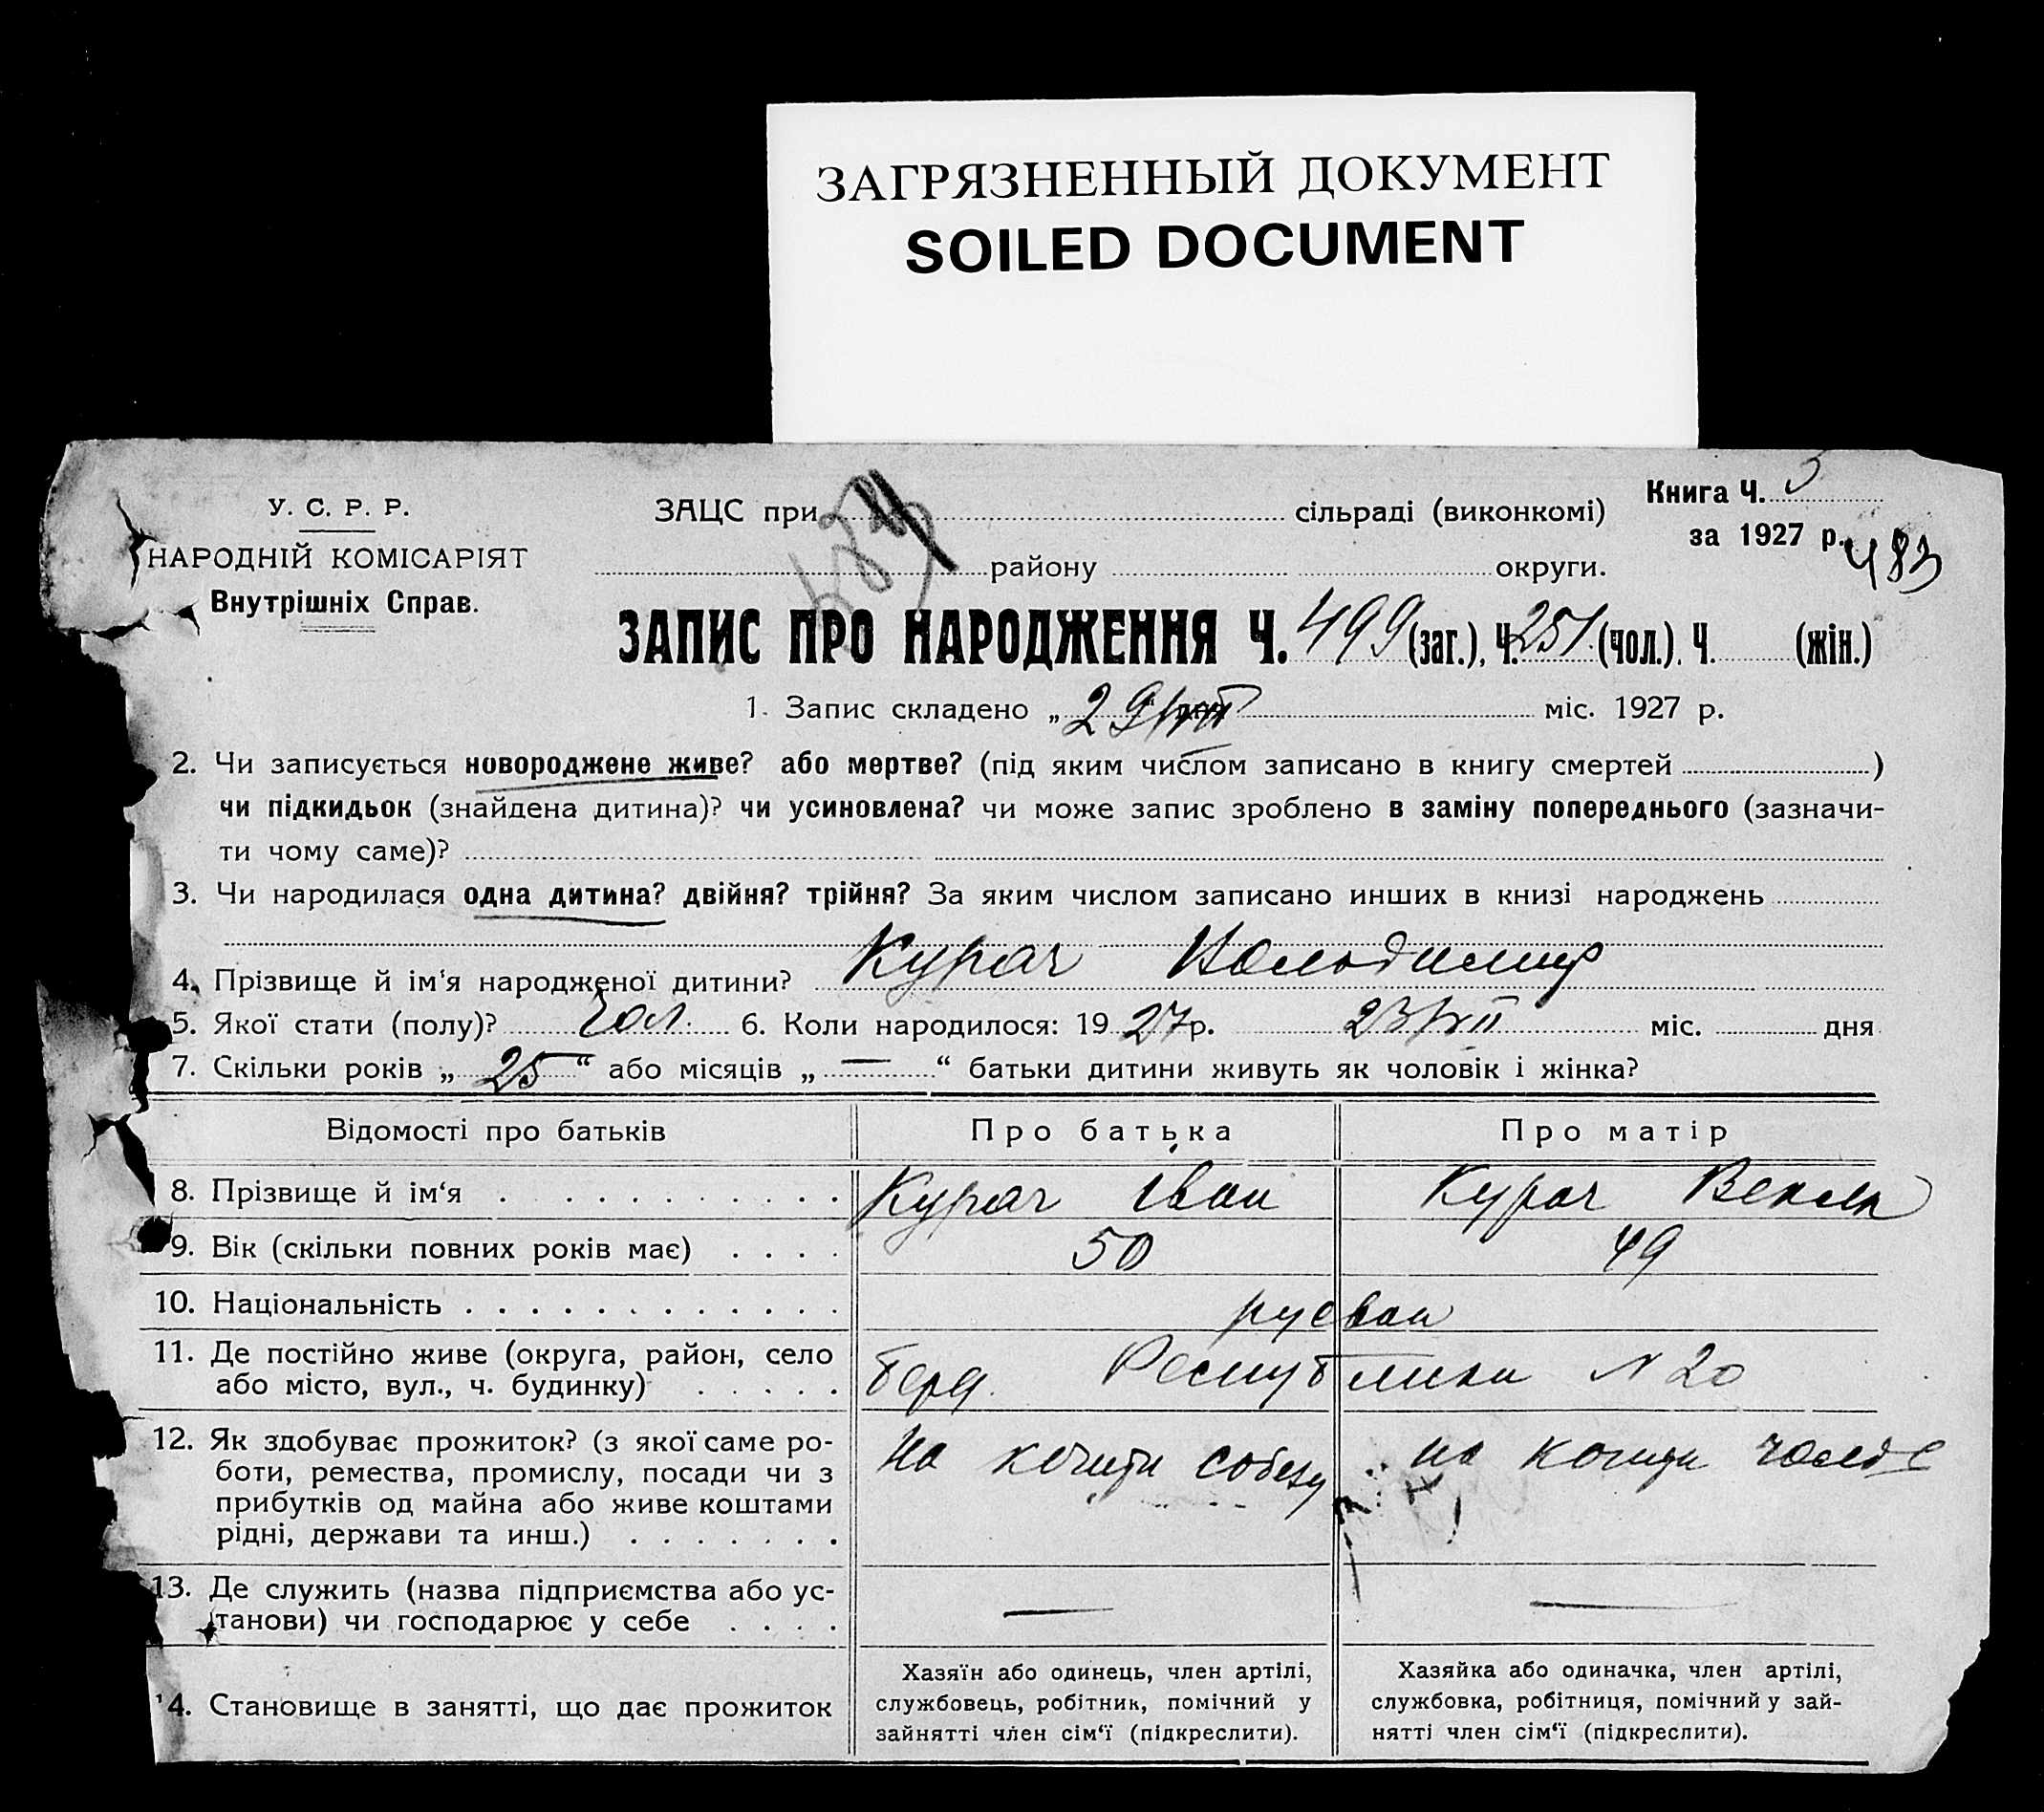 ЗАГРЯЗНЕННЫЙ ДОКУМЕНТ
SOILED DOCUMENT
У. С. Р. Р.
НАРОДНІЙ КОМІСАРІЯТ
Внутрішніх Справ.
ЗАЦС при сільраді (виконкомі)
району округи.
Книга Ч. 3
за 1927 р.
483
ЗАПИС ПРО НАРОДЖЕННЯ Ч. 499 (заг.), Ч. 251 (чол.), Ч. (жін.)
1. Запис складено „29/VIII міс. 1927 р.
2. Чи записується новороджене живе? або мертве? (під яким числом записано в книгу смертей )
чи підкидьок (знайдена дитина)? чи усиновлена? чи може запис зроблено в заміну попереднього (зазначи-
ти чому саме)?
3. Чи народилася одна дитина? двійня? трійня? За яким числом записано инших в книзі народжень
4. Прізвище й ім'я народженої дитини? Курач Володимир
5. Якої стати (полу)? Чол. 6. Коли народилося: 1927 р. 23/VII міс. дня
7. Скільки років „25“ або місяців „—“ батьки дитини живуть як чоловік і жінка?
Відомості про батьків Про батька Про матір
8. Прізвище й ім'я Курач Іван Курач Векла
9. Вік (скільки повних років має) 50 49
10. Національність
11. Де постійно живе (округа, район, село
або місто, вул., ч. будинку) Республики N 20
12. Як здобуває прожиток? (з якої саме ро-
боти, ремества, промислу, посади чи з
прибутків од майна або живе коштами
рідні, держави та инш.) На кошти собезу на кошти
13. Де служить (назва підприємства або ус-
танови) чи господарює у себе — —
14. Становище в занятті, що дає прожиток
Хазяїн або одинець, член артілі,
службовець, робітник, помічний у
зайнятті член сім'ї (підкреслити).
Хазяйка або одиначка, член артілі,
службовка, робітниця, помічний у зай-
нятті член сім'ї (підкреслити).